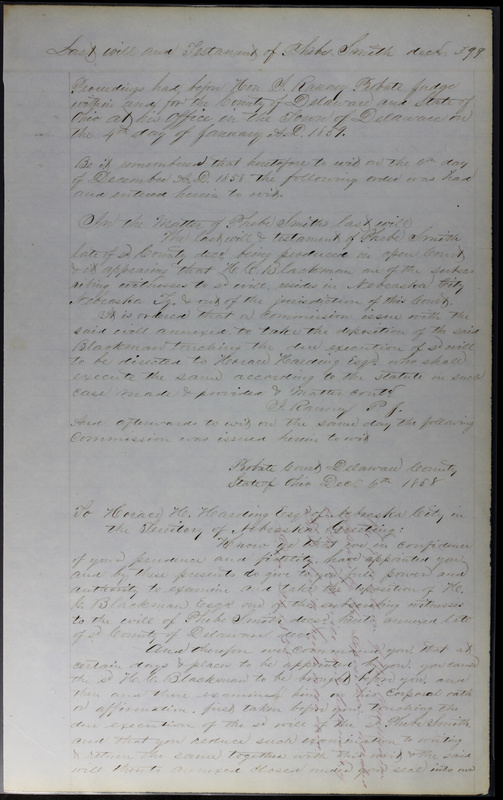 Last will and Testament of Phebe Smith decd. 399
Proceedings had before Hon T. Ranney Probate Judge
within and for the County of Delaware and State of
Ohio at his office in the Town of Delaware on
the 4th day of January A.D. 1859.
Be it remembered that heretofore to wit on the 6th day
of December A.D. 1858 the following order was had
and entered herein to wit.
In the matter of Phebe Smiths last will
The last will & testament of Phebe Smith
late of sd County decd being produced in open Court
& it appearing that H. C. Blackman one of the subsc-
ribing witnesses to sd will resides in Nebraska City
Nebraska Ty. & out of the jurisdiction of this Court.
It is ordered that a Commission issue with the
said will annexed, to take the deposition of the said
Blackman touching the due execution of sd will
to be directed to Horace Harding Esqr. who shall
execute the same according to the Statute in such
case made & provided & matter contd
T. Ranney P. J.
And afterwards to wit on the same day the following
Commission was issued herein to wit
Probate Court Delaware County
State of Ohio Dec 6th 1858
To Horace H. Harding Esqr of Nebraska City in
the Territory of Nebraska Greeting:
Know ye that we in confidence
of your prudence and fidelity have appointed you
and by these presents do give to you full power and
authority to examine and take the deposition of H.
C. Blackman Esqr one of the subscribing witnesses
to the will of Phebe Smith decd hereto annexed late
of sd County of Delaware decd.
And therefore we command you that at
certain days & place to be appointed by you, you cause
the sd H. C. Blackman to be brought before you, and
then and there examine him on his Corporal oath
or affirmation, first taken before you, touching the
due execution of the sd will of the sd Phebe Smith
and that you reduce such examination to writing
& return the same together with this writ & the said
will thereto annexed closed under your seal into our